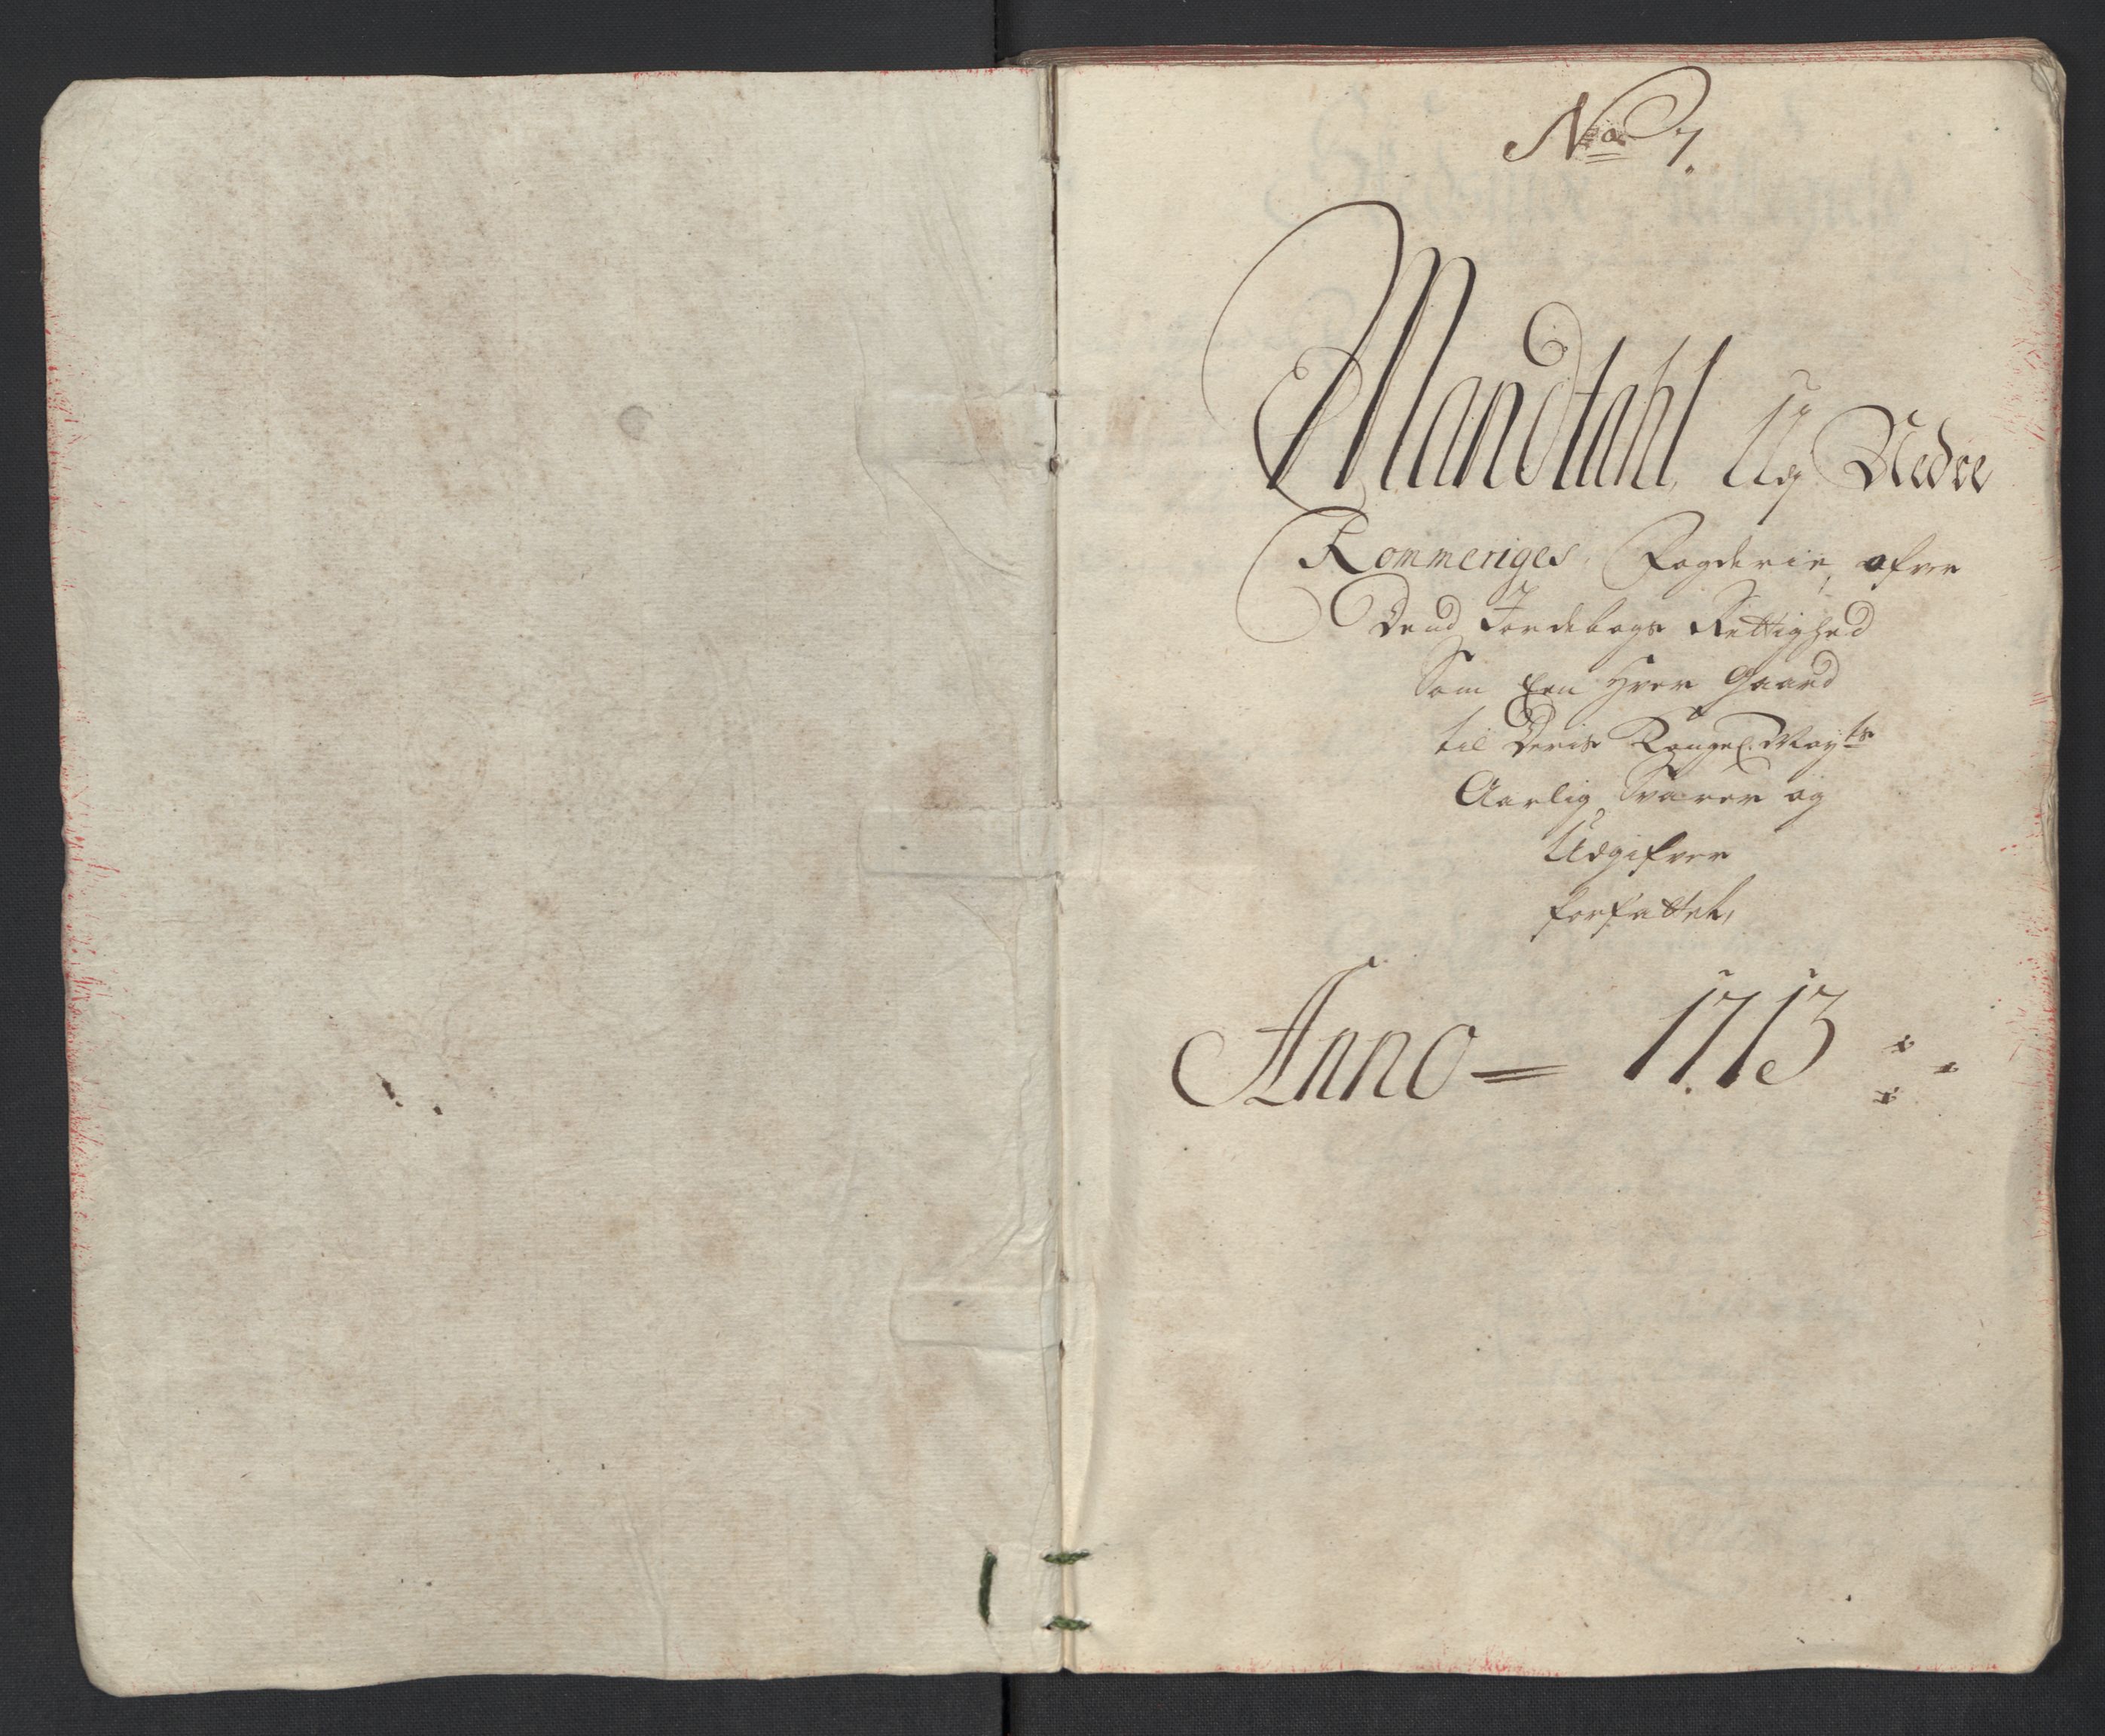 No 7.
Mandtahl Ug Nedre
Rommeriges Fogderie, ofver
Dend Jordebogs Rettighed
Som Een Hver Gaard
til Deris Kongel. Mayts
Aarlig Svarer og
Udgifver
forfattet,
Anno = 1713